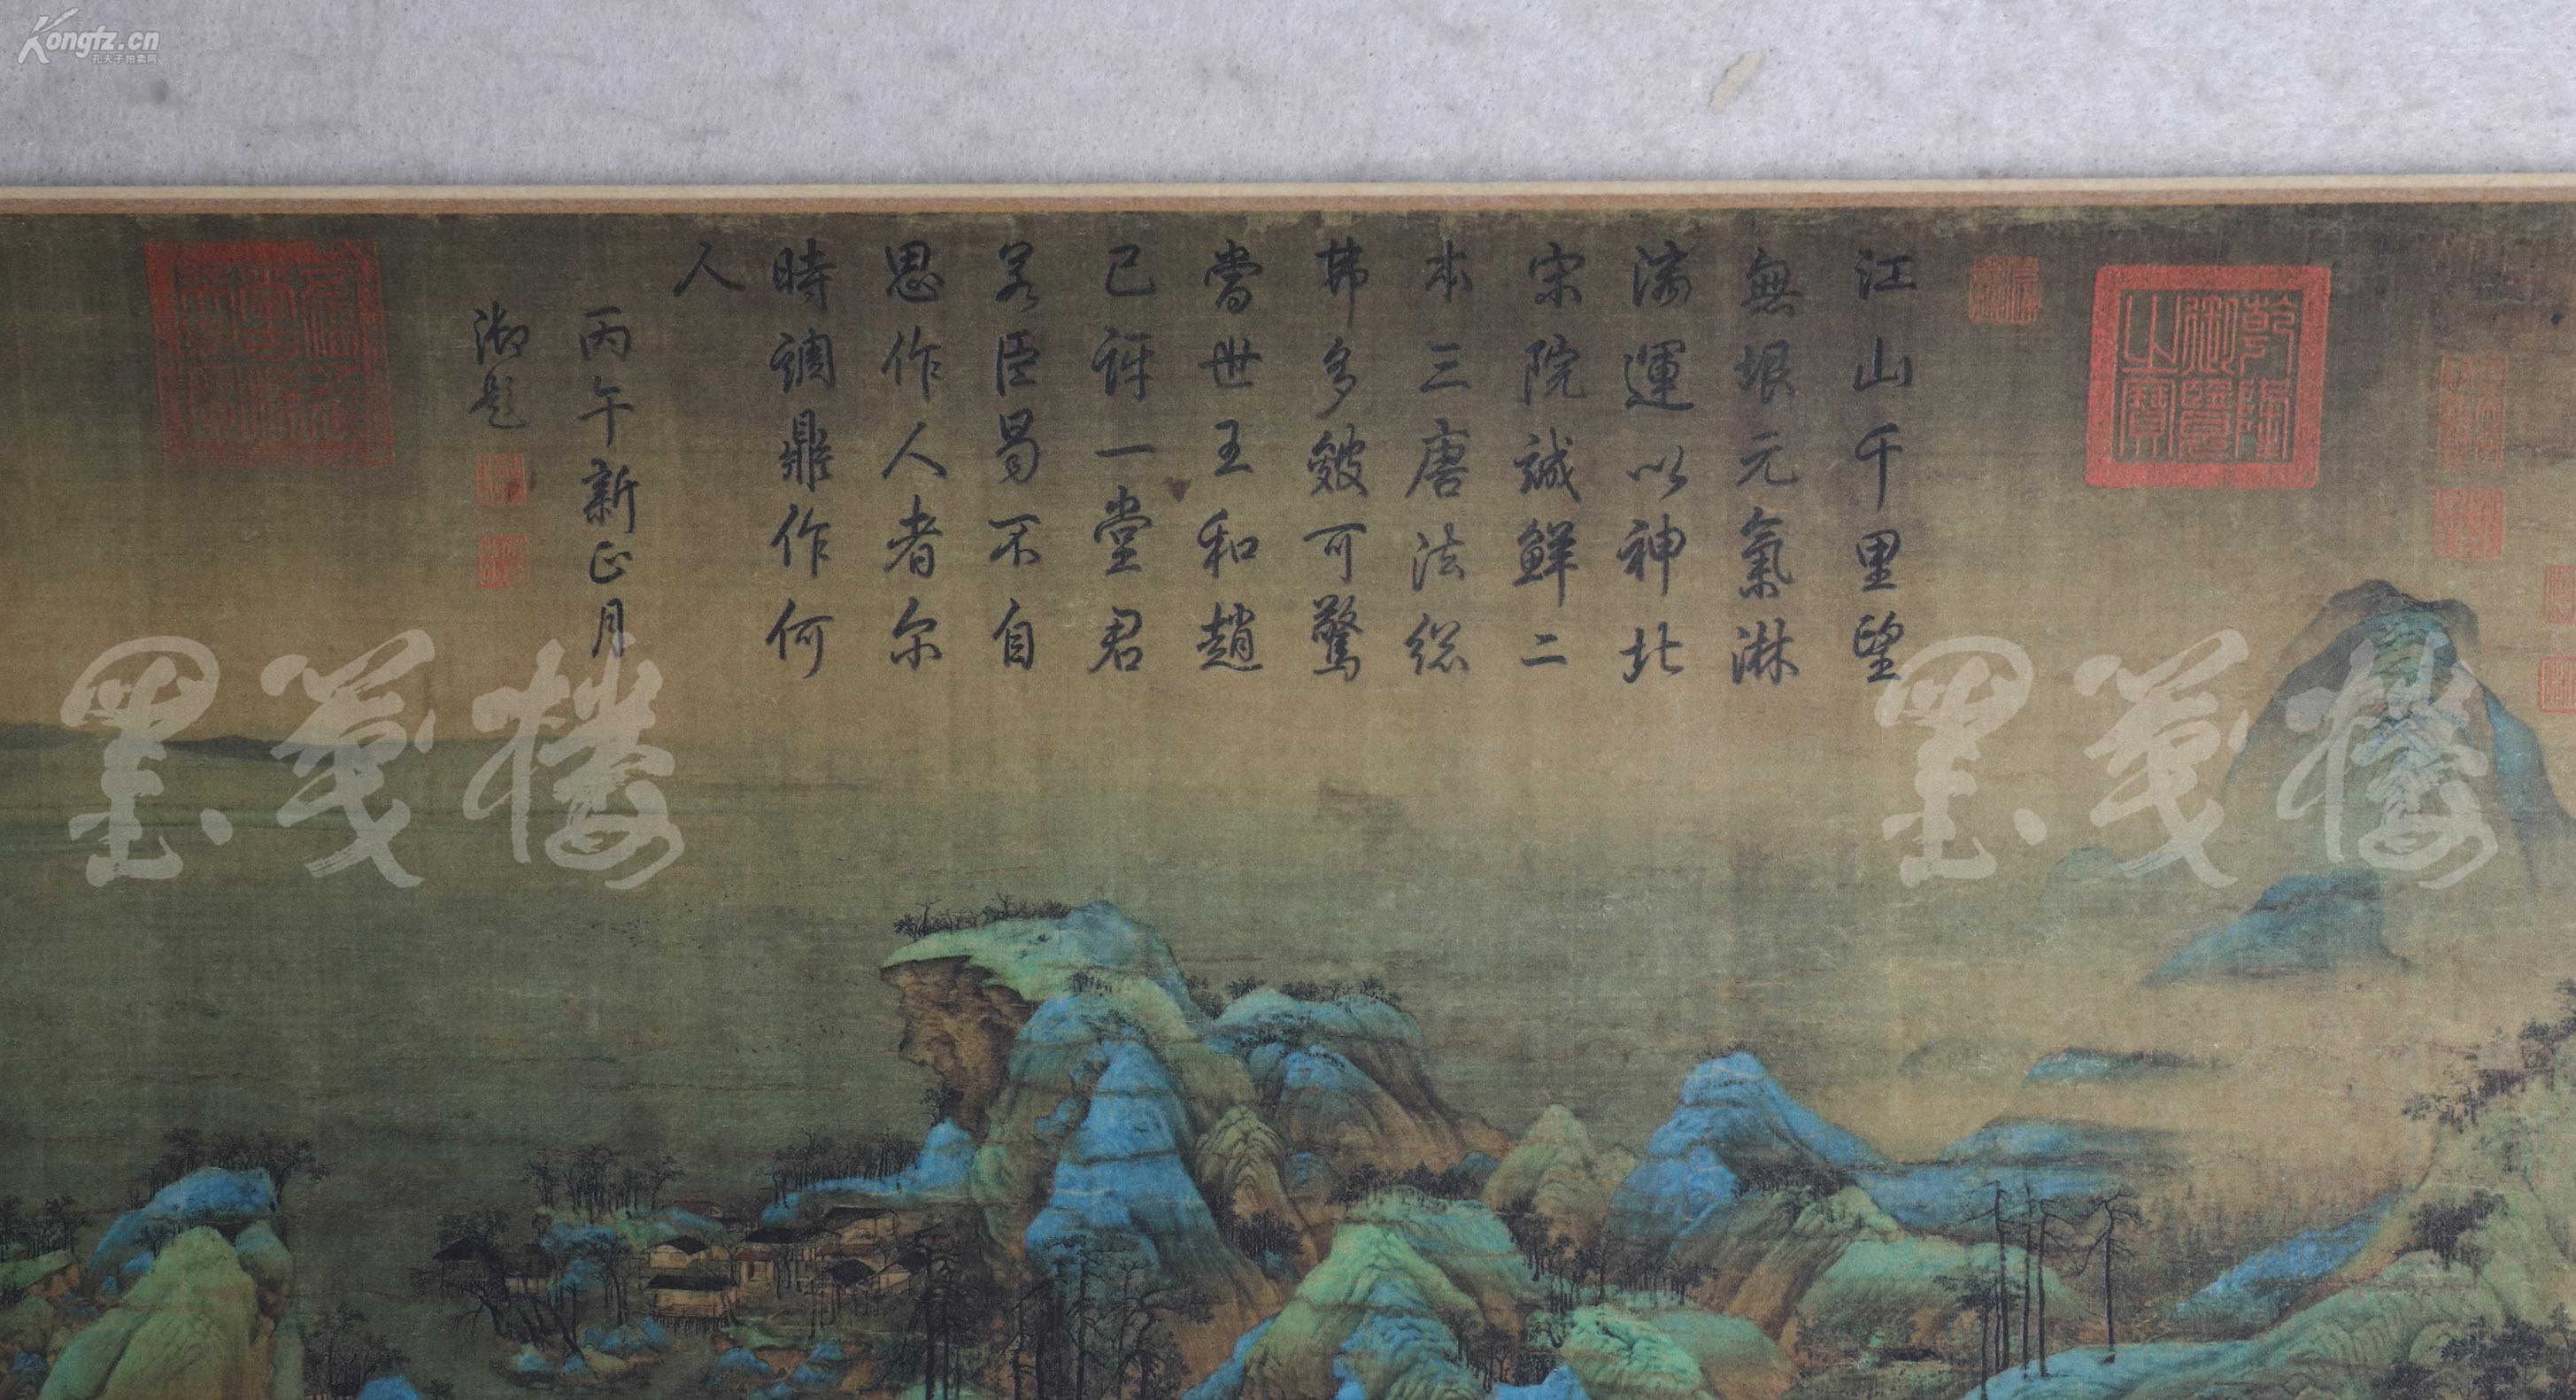 Kongfz.cn
孔夫子拍卖网
江山千里望
無垠元氣淋
漓運以神北
宋院誠鮮二
本三唐法総
弗多皴可驚
當世王和趙
已訝一堂君
若臣曷不自
思作人者尔
時調鼎作何
人
丙午新正月
御題
乾隆
御覽
之寶
墨箋樓
墨箋樓